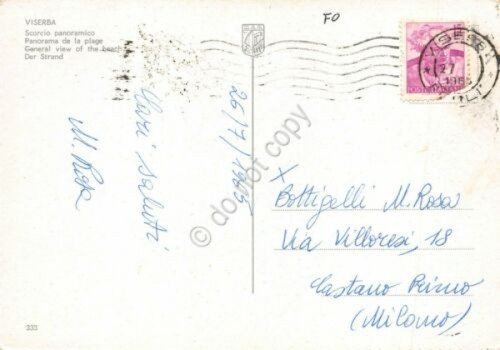 VISERBA
Scorcio panoramico
Panorama de la plage
General view of the beach
Der Strand
FO
VISERBA
27
1965
POSTE ITALIANE
26/7/1965
Cari saluti
M. Rosa
X
Bottigelli M. Rosa
Via Villoresi, 18
Castano Primo
(Milano)
333
© docnot copy